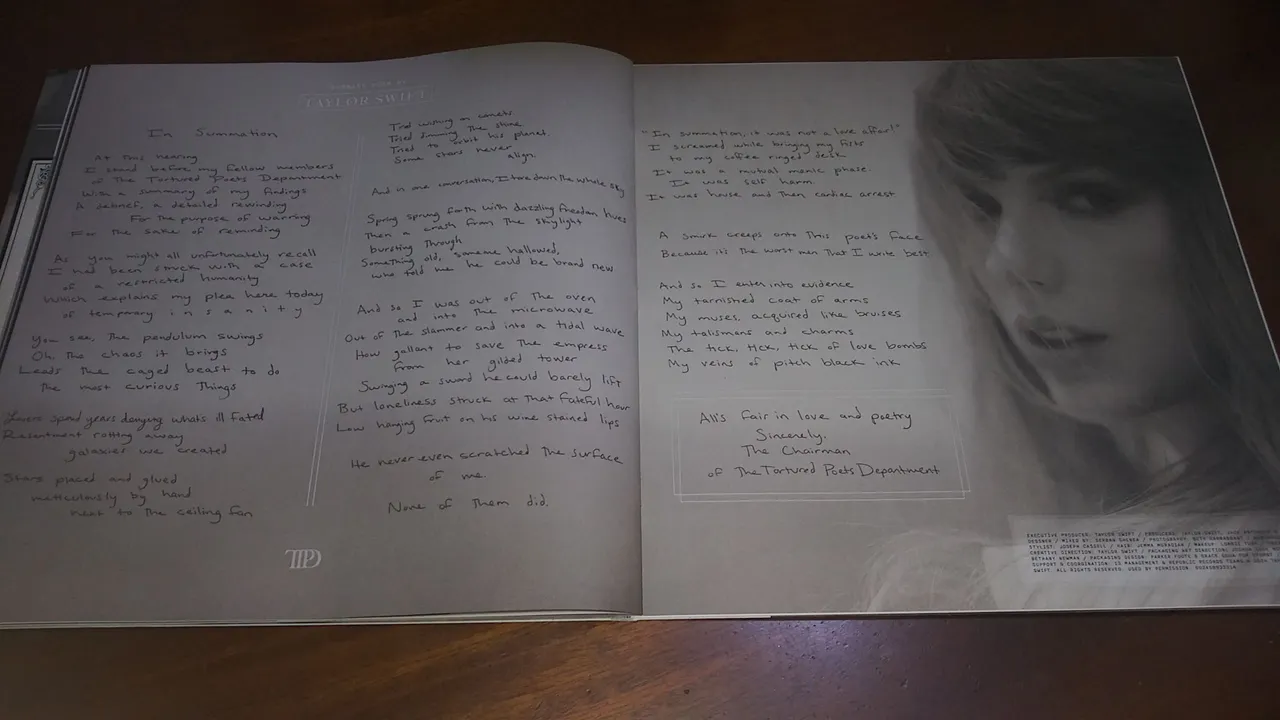 TAYLOR SWIFT
In Summation
At this hearing
I stand before my fellow members
of The Tortured Poets Department
With a summary of my findings
A debrief, a detailed rewinding
For the purpose of warning
For the sake of reminding
As you might all unfortunately recall
I had been struck with a case
of a restricted humanity
Which explains my plea here today
of temporary insanity
You see, the pendulum swings
Oh, the chaos it brings
Leads the caged beast to do
the most curious things
Lovers spend years denying what's ill fated
Resentment rotting away
galaxies we created
Stars placed and glued
meticulously by hand
next to the ceiling fan
Tried wishing on comets
Tried dimming the shine
Tried to orbit his planet.
Some stars never
align.
And in one conversation, I tore down the whole sky
Spring sprung forth with dazzling freedom hues
Then a crash from the skylight
bursting through
Something old, someone hallowed,
who told me he could be brand new
And so I was out of the oven
and into the microwave
Out of the slammer and into a tidal wave
How gallant to save the empress
from her gilded tower
Swinging a sword he could barely lift
But loneliness struck at that fateful hour
Low hanging fruit on his wine stained lips
He never even scratched the surface
of me.
None of them did.
TTPD
"In summation, it was not a love affair!"
I screamed while bringing my fists
to my coffee ringed desk
It was a mutual manic phase.
It was self harm.
It was house and then cardiac arrest
A smirk creeps onto this poet's face
Because it's the worst men that I write best
And so I enter into evidence
My tarnished coat of arms
My muses, acquired like bruises
My talismans and charms
The tick, tick, tick of love bombs
My veins of pitch black ink
All's fair in love and poetry
Sincerely,
The Chairman
of The Tortured Poets Department
EXECUTIVE PRODUCER: TAYLOR SWIFT / PRODUCERS: TAYLOR SWIFT,
STYLIST: JOSEPH CASSELL / HAIR: JEMMA MURADIAN / MAKEUP: LORRIE
CREATIVE DIRECTION: TAYLOR SWIFT / PACKAGING ART DIRECTION:
BETHANY NEWMAN / PACKAGING DESIGN: PARKER
SUPPORT & COORDINATION: 13 MANAGEMENT & REPUBLIC RECORDS
SWIFT. ALL RIGHTS RESERVED. USED BY PERMISSION.